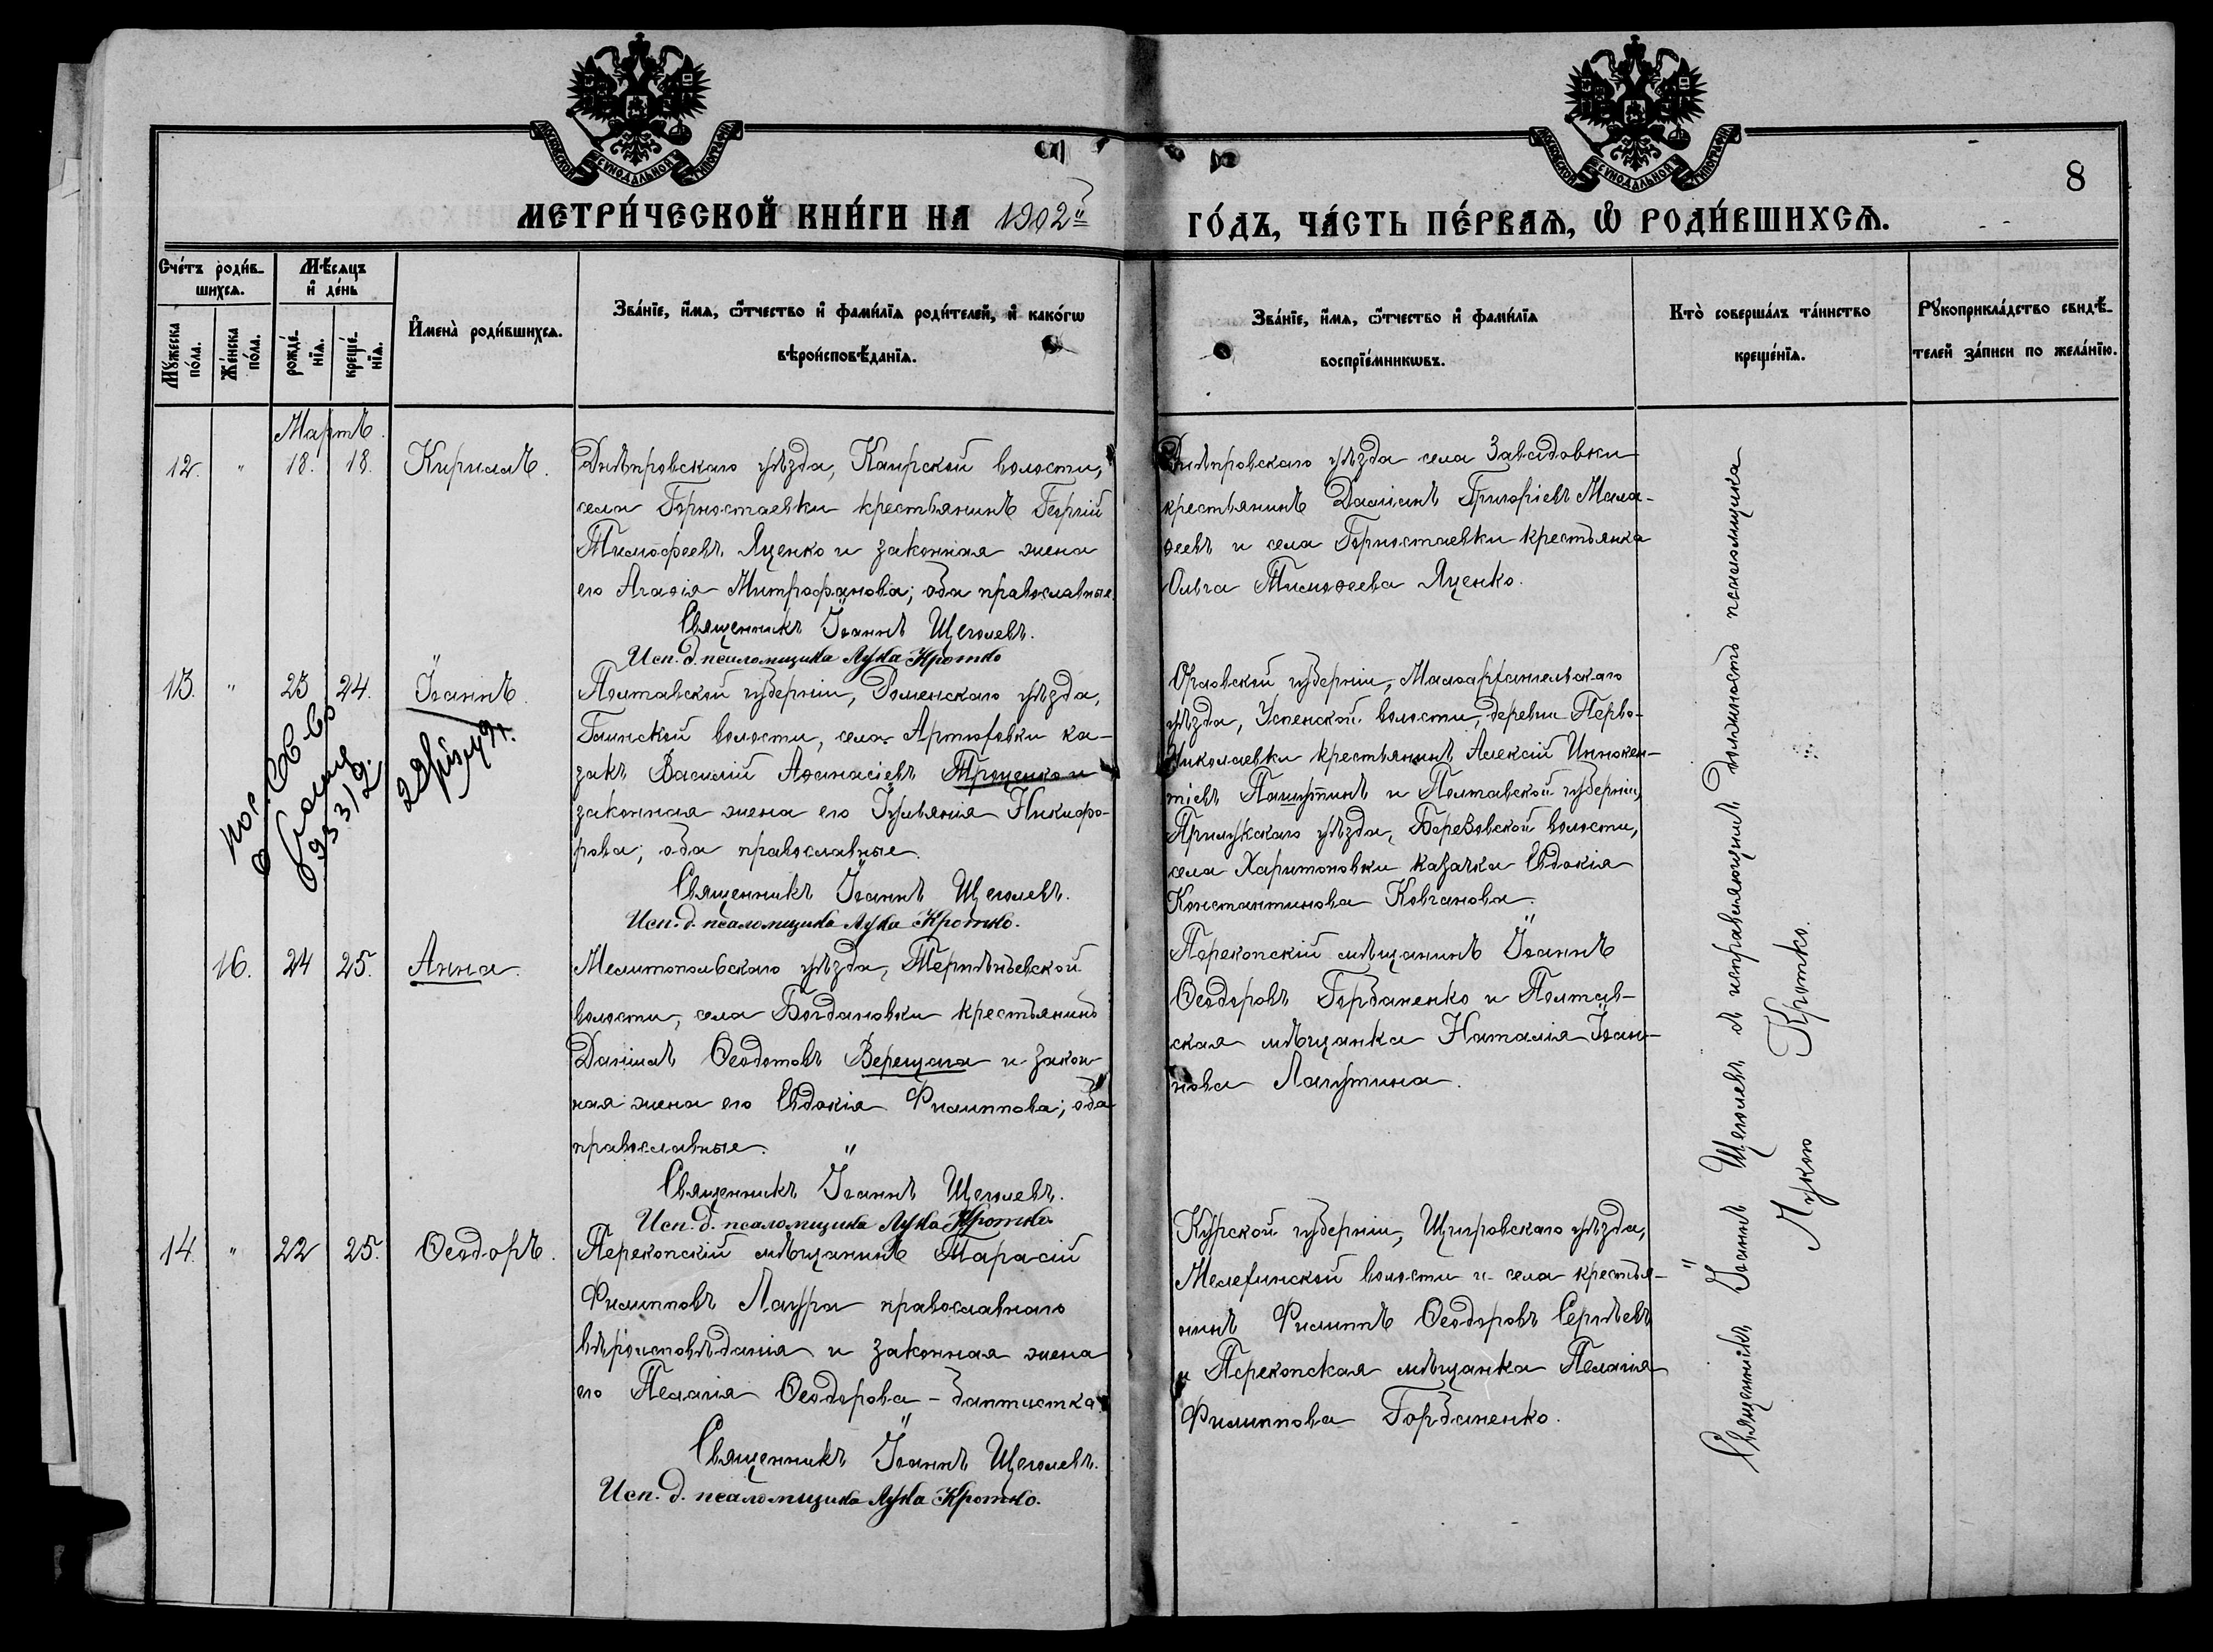 МОСКОВСКОЙ СѴНОДАЛЬНОЙ ТИПОГРАФІИ
МОСКОВСКОЙ СѴНОДАЛЬНОЙ ТИПОГРАФІИ
8
МЕТРИ́ЧЕСКОЙ КНИ́ГИ НА 1902й
ГО́ДЪ, ЧА́СТЬ ПЕ́РВАѦ, Ѡ҆ РОДИ́ВШИХСѦ.
Сче́тъ роди́в-
шихсѧ.
Мѣ́сѧцъ
и҆ де́нь
Мꙋ́жеска
по́ла.
Же́нска
по́ла.
рожде́-
нїѧ.
креще́-
нїѧ.
И҆мена̀ роди́вшихсѧ.
Зва́нїе, и҆́мѧ, ѻ҆́тчество и҆ фами́лїѧ роди́телей, и҆ како́гѡ
вѣроисповѣ́данїѧ.
Зва́нїе, и҆́мѧ, ѻ҆́тчество и҆ фами́лїѧ
воспрїе́мникѡвъ.
Кто̀ соверша́лъ та́инство
креще́нїѧ.
Рꙋкоприкла́дство свидѣ́-
телей за́писи по жела́нїю.
Мартъ.
12. " 18. 18. Кириллъ.
Днѣпровскаго уѣзда, Каирской волости,
села Горностаевки крестьянинъ Георгій
Тимофеевъ Яценко и законная жена
его Агафія Митрофанова; оба православные.
Священникъ Іоаннъ Щеголевъ.
Исп. д. псаломщика Лука Кротко
Днѣпровскаго уѣзда села Завадовки
крестьянинъ Даміанъ Григоріевъ Мала-
ѳеевъ и села Горностаевки крестьянка
Ольга Тимоѳеева Яценко.
13. " 23 24. Іоаннъ.
Полтавской губерніи, Роменскаго уѣзда,
Глинской волости, села Артюховки ка-
закъ Василій Аѳанасіевъ Троценко и
законная жена его Іуліанія Никифо-
рова; оба православные.
Священникъ Іоаннъ Щеголевъ.
Исп. д. псаломщика Лука Кротко.
Орловской губерніи, Малоархангельскаго
уѣзда, Успенской волости, деревни Перво-
николаевки крестьянинъ Алексій Иннокен-
тіевъ Пашутинъ и Полтавской губерніи,
Прилукскаго уѣзда, Березовской волости,
села Харитоновки казачка Евдокія
Константинова Ковганова.
16. 24 25. Анна.
Мелитопольскаго уѣзда, Терпѣньевской
волости, села Богдановки крестьянинъ
Даніилъ Ѳеодотовъ Верещага и закон
ная жена его Евдокія Филиппова; оба
православные.
Священникъ Іоаннъ Щеголевъ.
Исп. д. псаломщика Лука Кротко
Перекопскій мѣщанинъ Іоаннъ
Ѳеодоровъ Горбаненко и Полтав-
ская мѣщанка Наталія Іоан-
нова Лагутина.
14. " 22 25. Ѳеодоръ.
Перекопскій мѣщанинъ Тарасій
Филипповъ Лагура православнаго
вѣроисповѣданія и законная жена
его Пелагія Ѳеодорова - баптистка
Священникъ Іоаннъ Щеголевъ.
Исп. д. псаломщика Лука Кротко.
Курской губерніи, Щигровскаго уѣзда,
Мелехинской волости и села крестья-
нинъ Филиппъ Ѳеодоровъ Сергѣевъ
и Перекопская мѣщанка Пелагія
Филиппова Горбаненко.
Священникъ Іоаннъ Щеголевъ съ исправляющимъ должность псаломщика
Лукою Кротко.